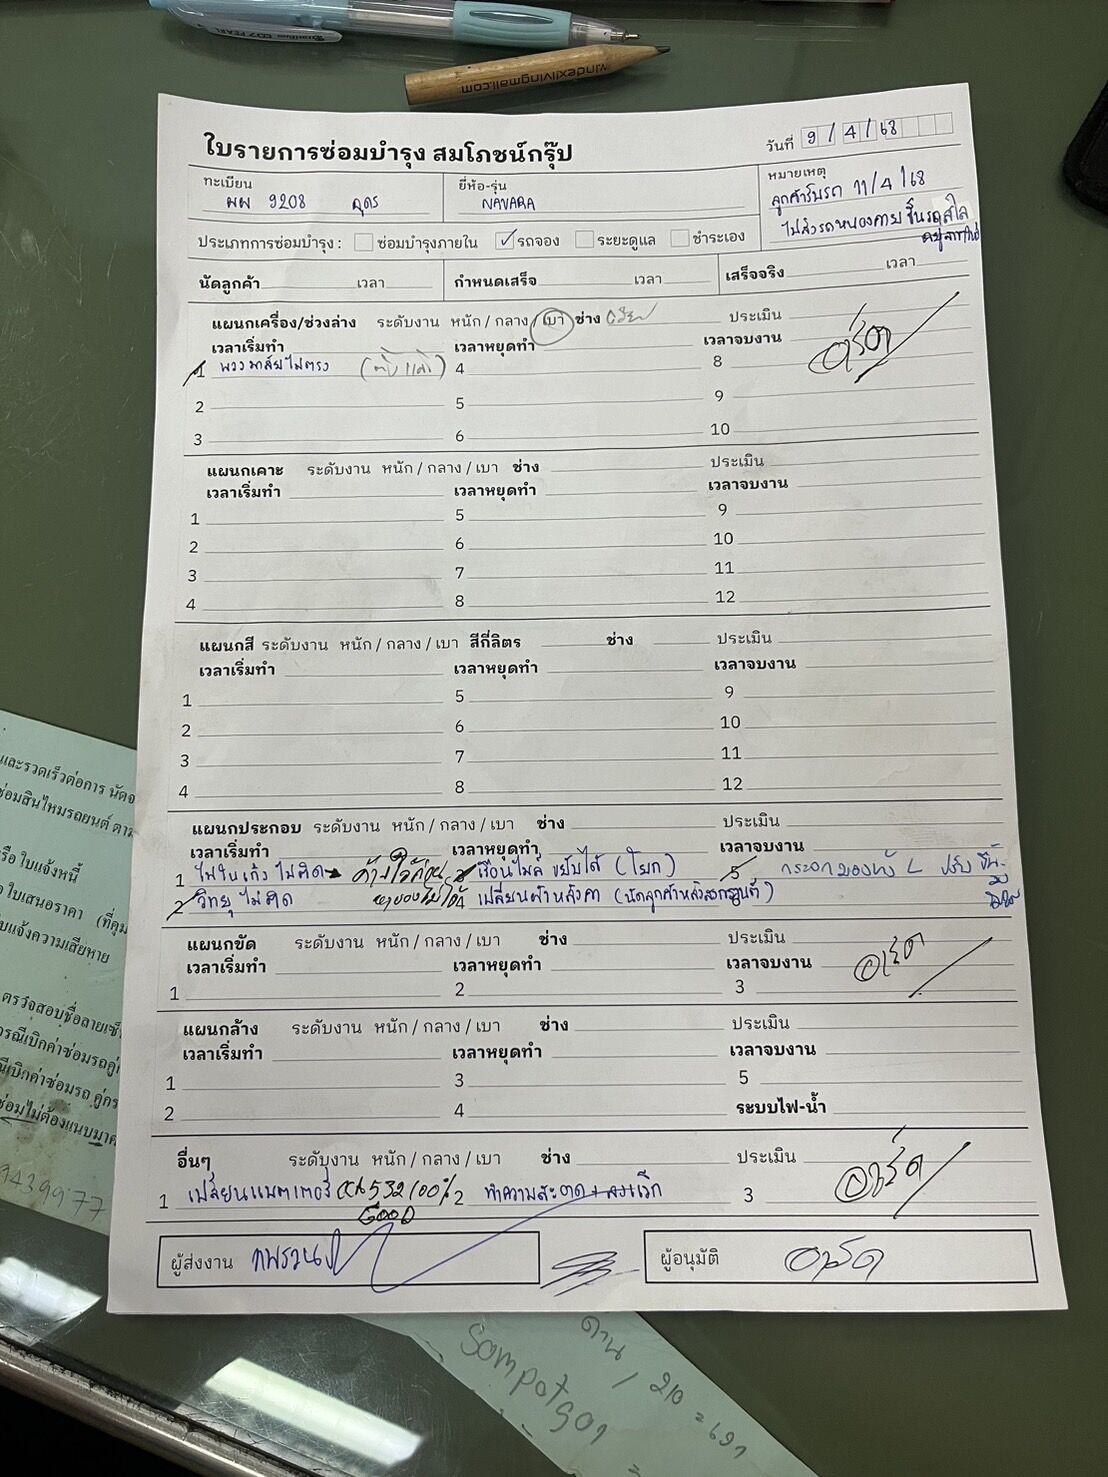 windexlivingmall.com
ใบรายการซ่อมบำรุง สมโภชน์กรุ๊ป
วันที่ 9/4/68
ทะเบียน ผผ 9208 อุดร
ยี่ห้อ-รุ่น NAVARA
หมายเหตุ ลูกค้ารับรถ 11/4/68
ไปส่งรถหนองคาย ขึ้นรถสไล
ประเภทการซ่อมบำรุง : ซ่อมบำรุงภายใน ✓ รถจอง ระยะดูแล ชำระเอง
นัดลูกค้า เวลา กำหนดเสร็จ เวลา เสร็จจริง เวลา
แผนกเครื่อง/ช่วงล่าง ระดับงาน หนัก / กลาง / เบา ช่าง ประเมิน
เวลาเริ่มทำ เวลาหยุดทำ เวลาจบงาน
1 พวงมาลัยไม่ตรง 4 8
2 5 9
3 6 10
แผนกเคาะ ระดับงาน หนัก / กลาง / เบา ช่าง ประเมิน
เวลาเริ่มทำ เวลาหยุดทำ เวลาจบงาน
1 5 9
2 6 10
3 7 11
4 8 12
แผนกสี ระดับงาน หนัก / กลาง / เบา สีกี่ลิตร ช่าง ประเมิน
เวลาเริ่มทำ เวลาหยุดทำ เวลาจบงาน
1 5 9
2 6 10
3 7 11
4 8 12
แผนกประกอบ ระดับงาน หนัก / กลาง / เบา ช่าง ประเมิน
เวลาเริ่มทำ เวลาหยุดทำ เวลาจบงาน
1 ไฟในเก๋ง ไม่ติด 3 เรือนไมล์ ขยับได้ (โยก) 5 กระจกมองข้าง L ปรับ ขึ้น-
2 วิทยุ ไม่ติด 4 เปลี่ยนผ้าหลังคา (นัดลูกค้าหลังสงกรานต์)
แผนกขัด ระดับงาน หนัก / กลาง / เบา ช่าง ประเมิน
เวลาเริ่มทำ เวลาหยุดทำ เวลาจบงาน
1 2 3
แผนกล้าง ระดับงาน หนัก / กลาง / เบา ช่าง ประเมิน
เวลาเริ่มทำ เวลาหยุดทำ เวลาจบงาน
1 3 5
2 4 ระบบไฟ-น้ำ
อื่นๆ ระดับงาน หนัก / กลาง / เบา ช่าง ประเมิน
1 เปลี่ยนแบตเตอรี่ CCA 532 100% 2 ทำความสะอาด 3
GOOD
ผู้ส่งงาน ผู้อนุมัติ
และรวดเร็วต่อการ
ซ่อมสินไหมรถยนต์ ตาม
ใบแจ้งหนี้
ใบเสนอราคา
แจ้งความเสียหาย
ตรวจสอบชื่อลายเซ็
เบิกค่าซ่อมรถคู่
เบิกค่าซ่อมรถ คู่กร
ซ่อมไม่ต้องแนบมา
9439977